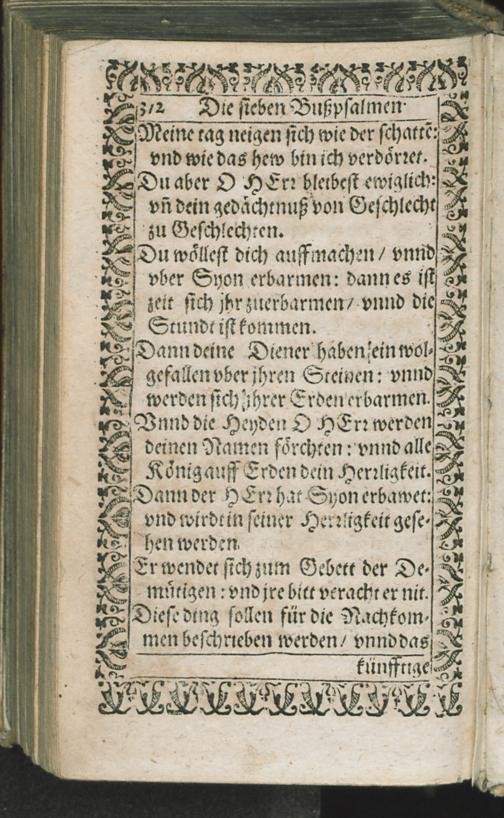 312 Die sieben Bußpsalmen.
Meine tag neigen sich wie der schattē:
vnd wie das hew bin ich verdörret.
Du aber O HErr bleibest ewiglich:
vñ dein gedächtnuß von Geschlecht
zu Geschlechten.
Du wöllest dich auffmachen / vnnd
vber Syon erbarmen: dann es ist
zeit sich jhr zuerbarmen / vnnd die
Stundt ist kommen.
Dann deine Diener haben ein wol-
gefallen vber jhren Steinen: vnnd
werden sich jhrer Erden erbarmen.
Vnnd die Heyden O HErr werden
deinen Namen förchten: vnnd alle
König auff Erden dein Herrligkeit.
Dann der HErr hat Syon erbawet:
vnd wirdt in seiner Herrligkeit gese-
hen werden.
Er wendet sich zum Gebett der De-
mütigen: vnd jre bitt veracht er nit.
Diese ding sollen für die Nachkom-
men beschrieben werden / vnnd das
künfftige